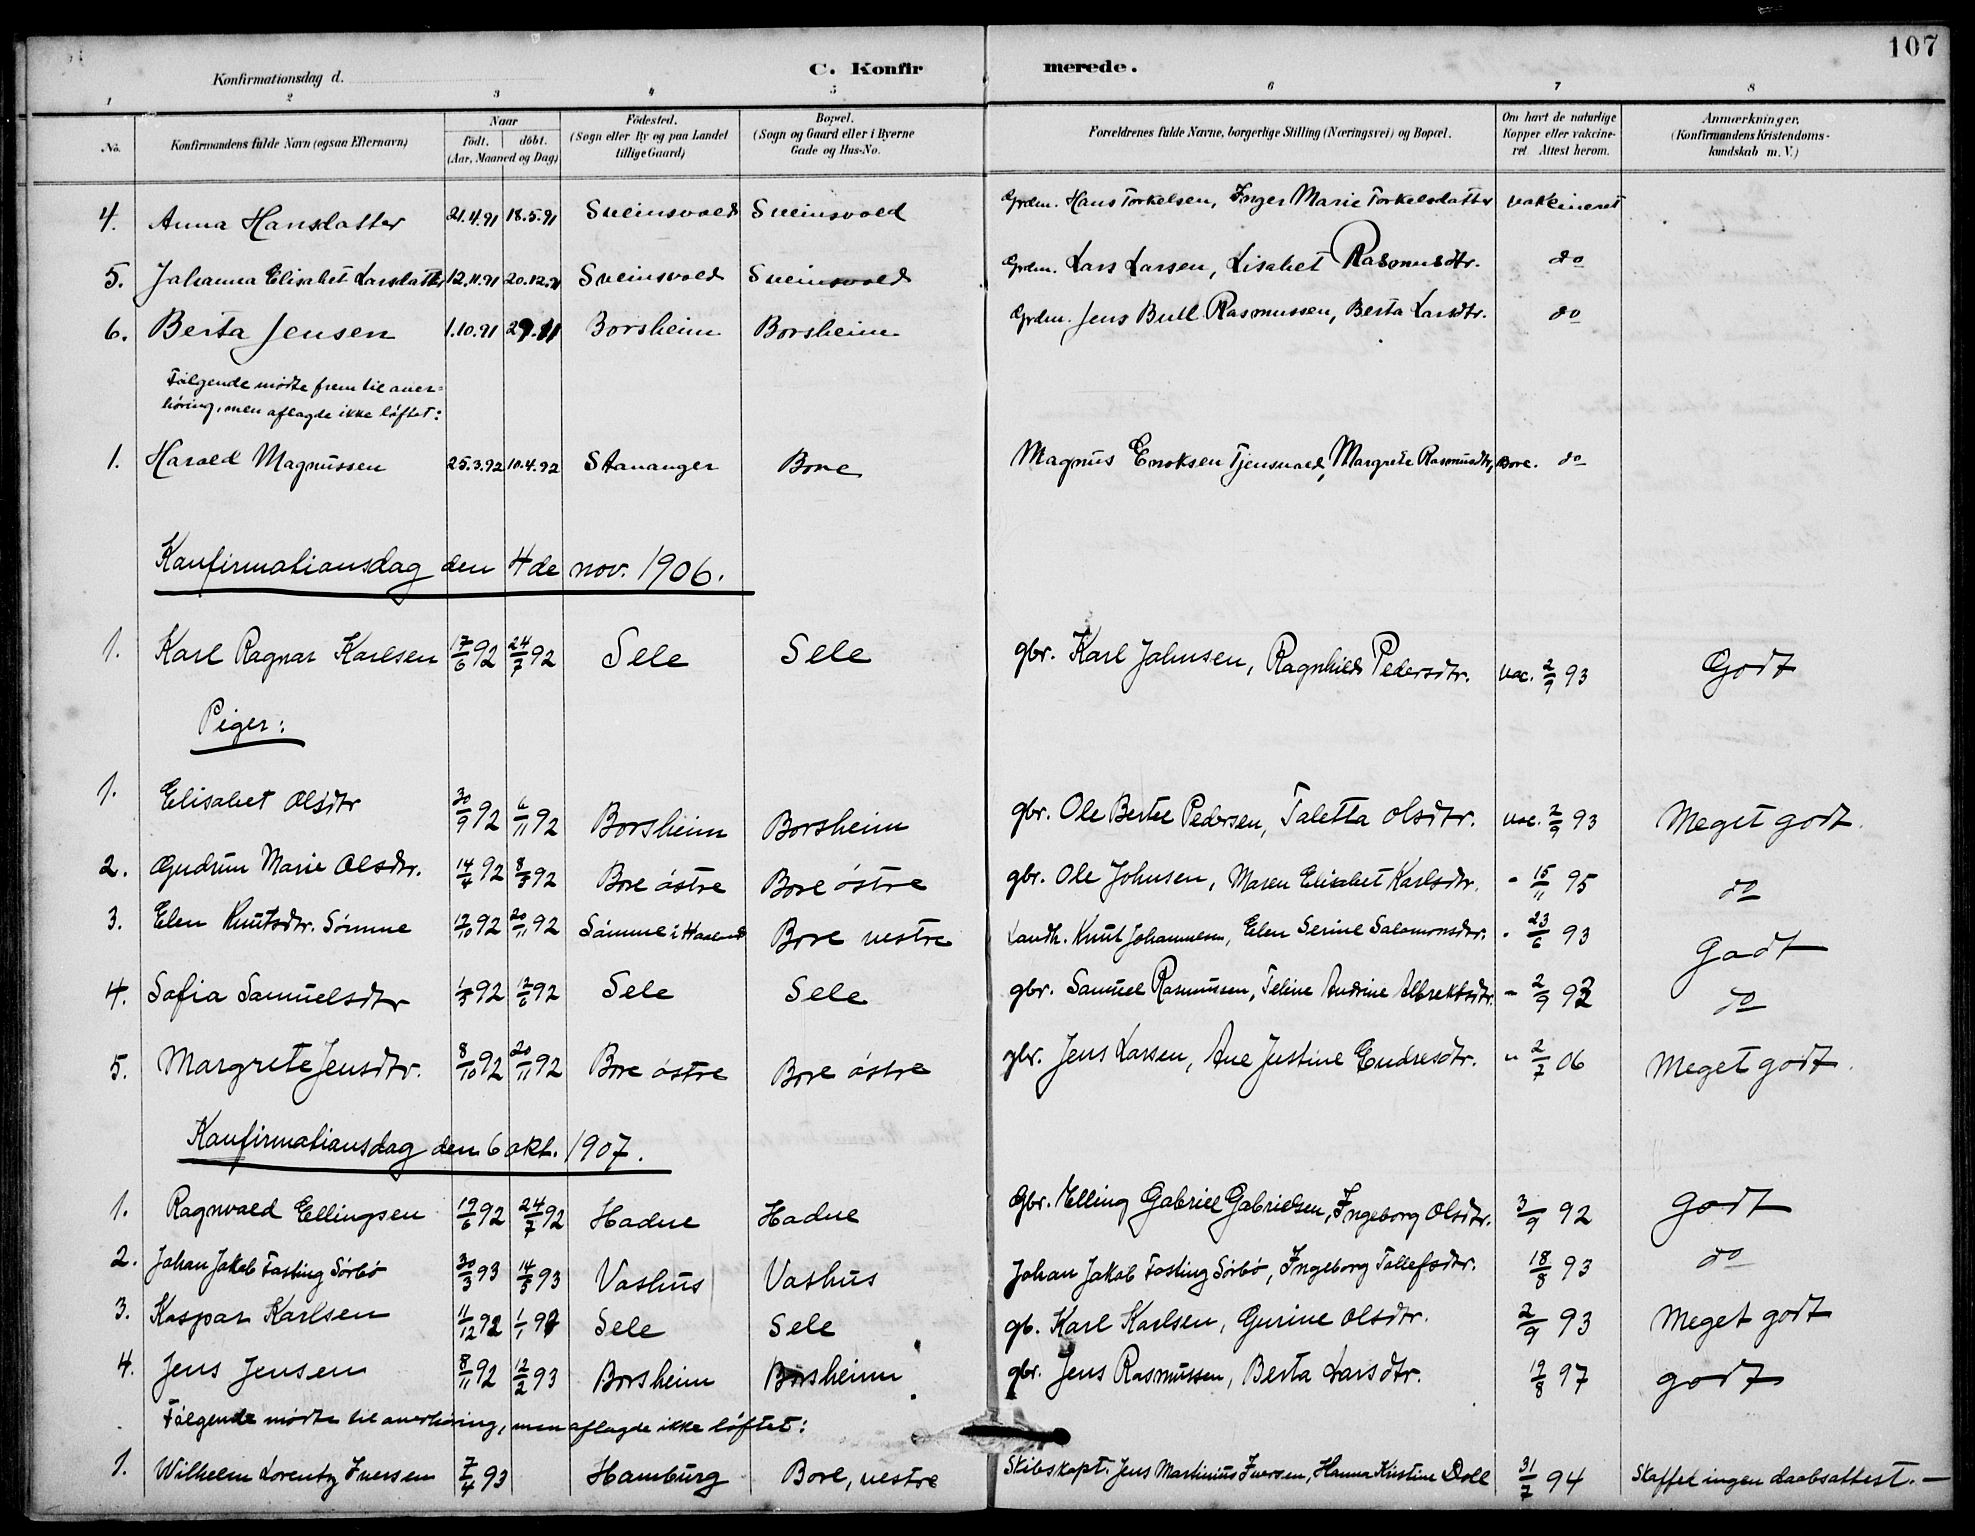 107
Konfirmationsdag d. C. Konfirmerede.
1 2 3 4 5 6 7 8
No. Konfirmandens fulde Navn (ogsaa Efternavn) Naar födt. döbt. (Aar, Maaned og Dag) Födested. (Sogn eller By og paa Landet tillige Gaard) Bopæl. (Sogn og Gaard eller i Byerne Gade og Hus-No. Forældrenes fulde Navne, borgerlige Stilling (Næringsvei) og Bopæl. Om havt de naturlige Kopper eller vakcineret. Attest herom. Anmærkninger. (Konfirmandens Kristendomskundskab m. V.)
4. Anna Hansdatter 21.4.91 18.5.91 Sveinsvold Sveinsvold Grdm. Hans Torkelsen, Inger Marie Torkelsdatter vakcineret
5. Johanna Elisabet Larsdatter 12.11.91 20.12.91 Sveinsvold Sveinsvold Grdm. Lars Larsen, Lisabet Rasmusdtr. do
6. Berta Jensen 1.10.91 29.11 Borsheim Borsheim Grdm. Jens Bull Rasmussen, Berta Larsdtr. do
Følgende mødte frem til over=
høring, men aflagde ikke løftet:
1. Harald Magnussen 25.3.92 10.4.92 Stavanger Bore Magnus Enoksen Tjensvold, Margrete Rasmusdtr, Bore. do
Konfirmationsdag den 4de nov. 1906.
1. Karl Ragnar Karlsen 17/6 92 24/7 92 Sele Sele gbr. Karl Johnsen, Ragnhild Pedersdtr. vac. 2/9 93 Godt
Piger:
1. Elisabet Olsdtr 30/9 92 6/11 92 Borsheim Borsheim gbr. Ole Bertil Pedersen, Taletta Olsdtr. vac. 2/9 93 Meget godt.
2. Gudrun Marie Olsdtr. 14/4 92 8/5 92 Bore østre Bore østre gbr. Ole Johnsen, Maren Elisabet Karlsdtr. - 15/11 95 do
3. Elen Knutsdtr. Sømme 17/10 92 20/11 92 Sømme i Haaland Bore vestre Landh. Knut Johannesen, Elen Serine Salomonsdtr. - 23/6 93 Godt
4. Sofia Samuelsdtr 1/5 92 12/6 92 Sele Sele gbr. Samuel Rasmussen, Teline Andrine Albrektsdtr. - 2/9 93 do
5. Margrete Jensdtr. 8/10 92 20/11 92 Bore østre Bore østre gbr. Jens Larsen, Ane Justine Endresdtr. " 2/7 06 Meget godt.
Konfirmationsdag den 6 okt. 1907.
1. Ragnvald Ellingsen 19/6 92 24/7 92 Hadne Hadne Gbr. Elling Gabriel Gabrielsen, Ingeborg Olsdtr. 3/9 92 godt
2. Johan Jakob Fasting Sørbø 30/3 93 14/5 93 Vashus Vashus Johan Jakob Fasting Sørbø, Ingeborg Tollefsdtr. 18/8 93 do
3. Kaspar Karlsen 11/12 92 1/1 93 Sele Sele gb. Karl Karlsen, Gurine Olsdtr. 2/9 93 Meget godt
4. Jens Jensen 8/11 92 12/2 93 Borsheim Borsheim gbr. Jens Rasmussen, Berta Larsdtr. 19/8 97 godt
Følgende mødte til overhøring, men aflagde ikke løftet:
1. Wilhelm Lorentz Iversen 7/4 93 Hamburg Bore, vestre Skibskapt. Jens Martinius Iversen, Hanna Kristine Doll 31/7 94 Skaffet ingen daabsattest. —